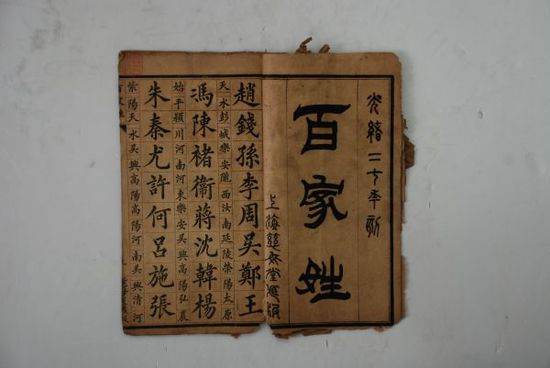 光緒二年新
百家姓
上海文堂
趙錢孫李周吳鄭王
天水彭城樂安隴西汝南延陵榮陽太原
馮陳褚衞蔣沈韓楊
始平潁川河南河東樂安吳興陽弘農
朱秦尤許何呂施張
紫陽天水吳興高陽高陽河南吳興清河